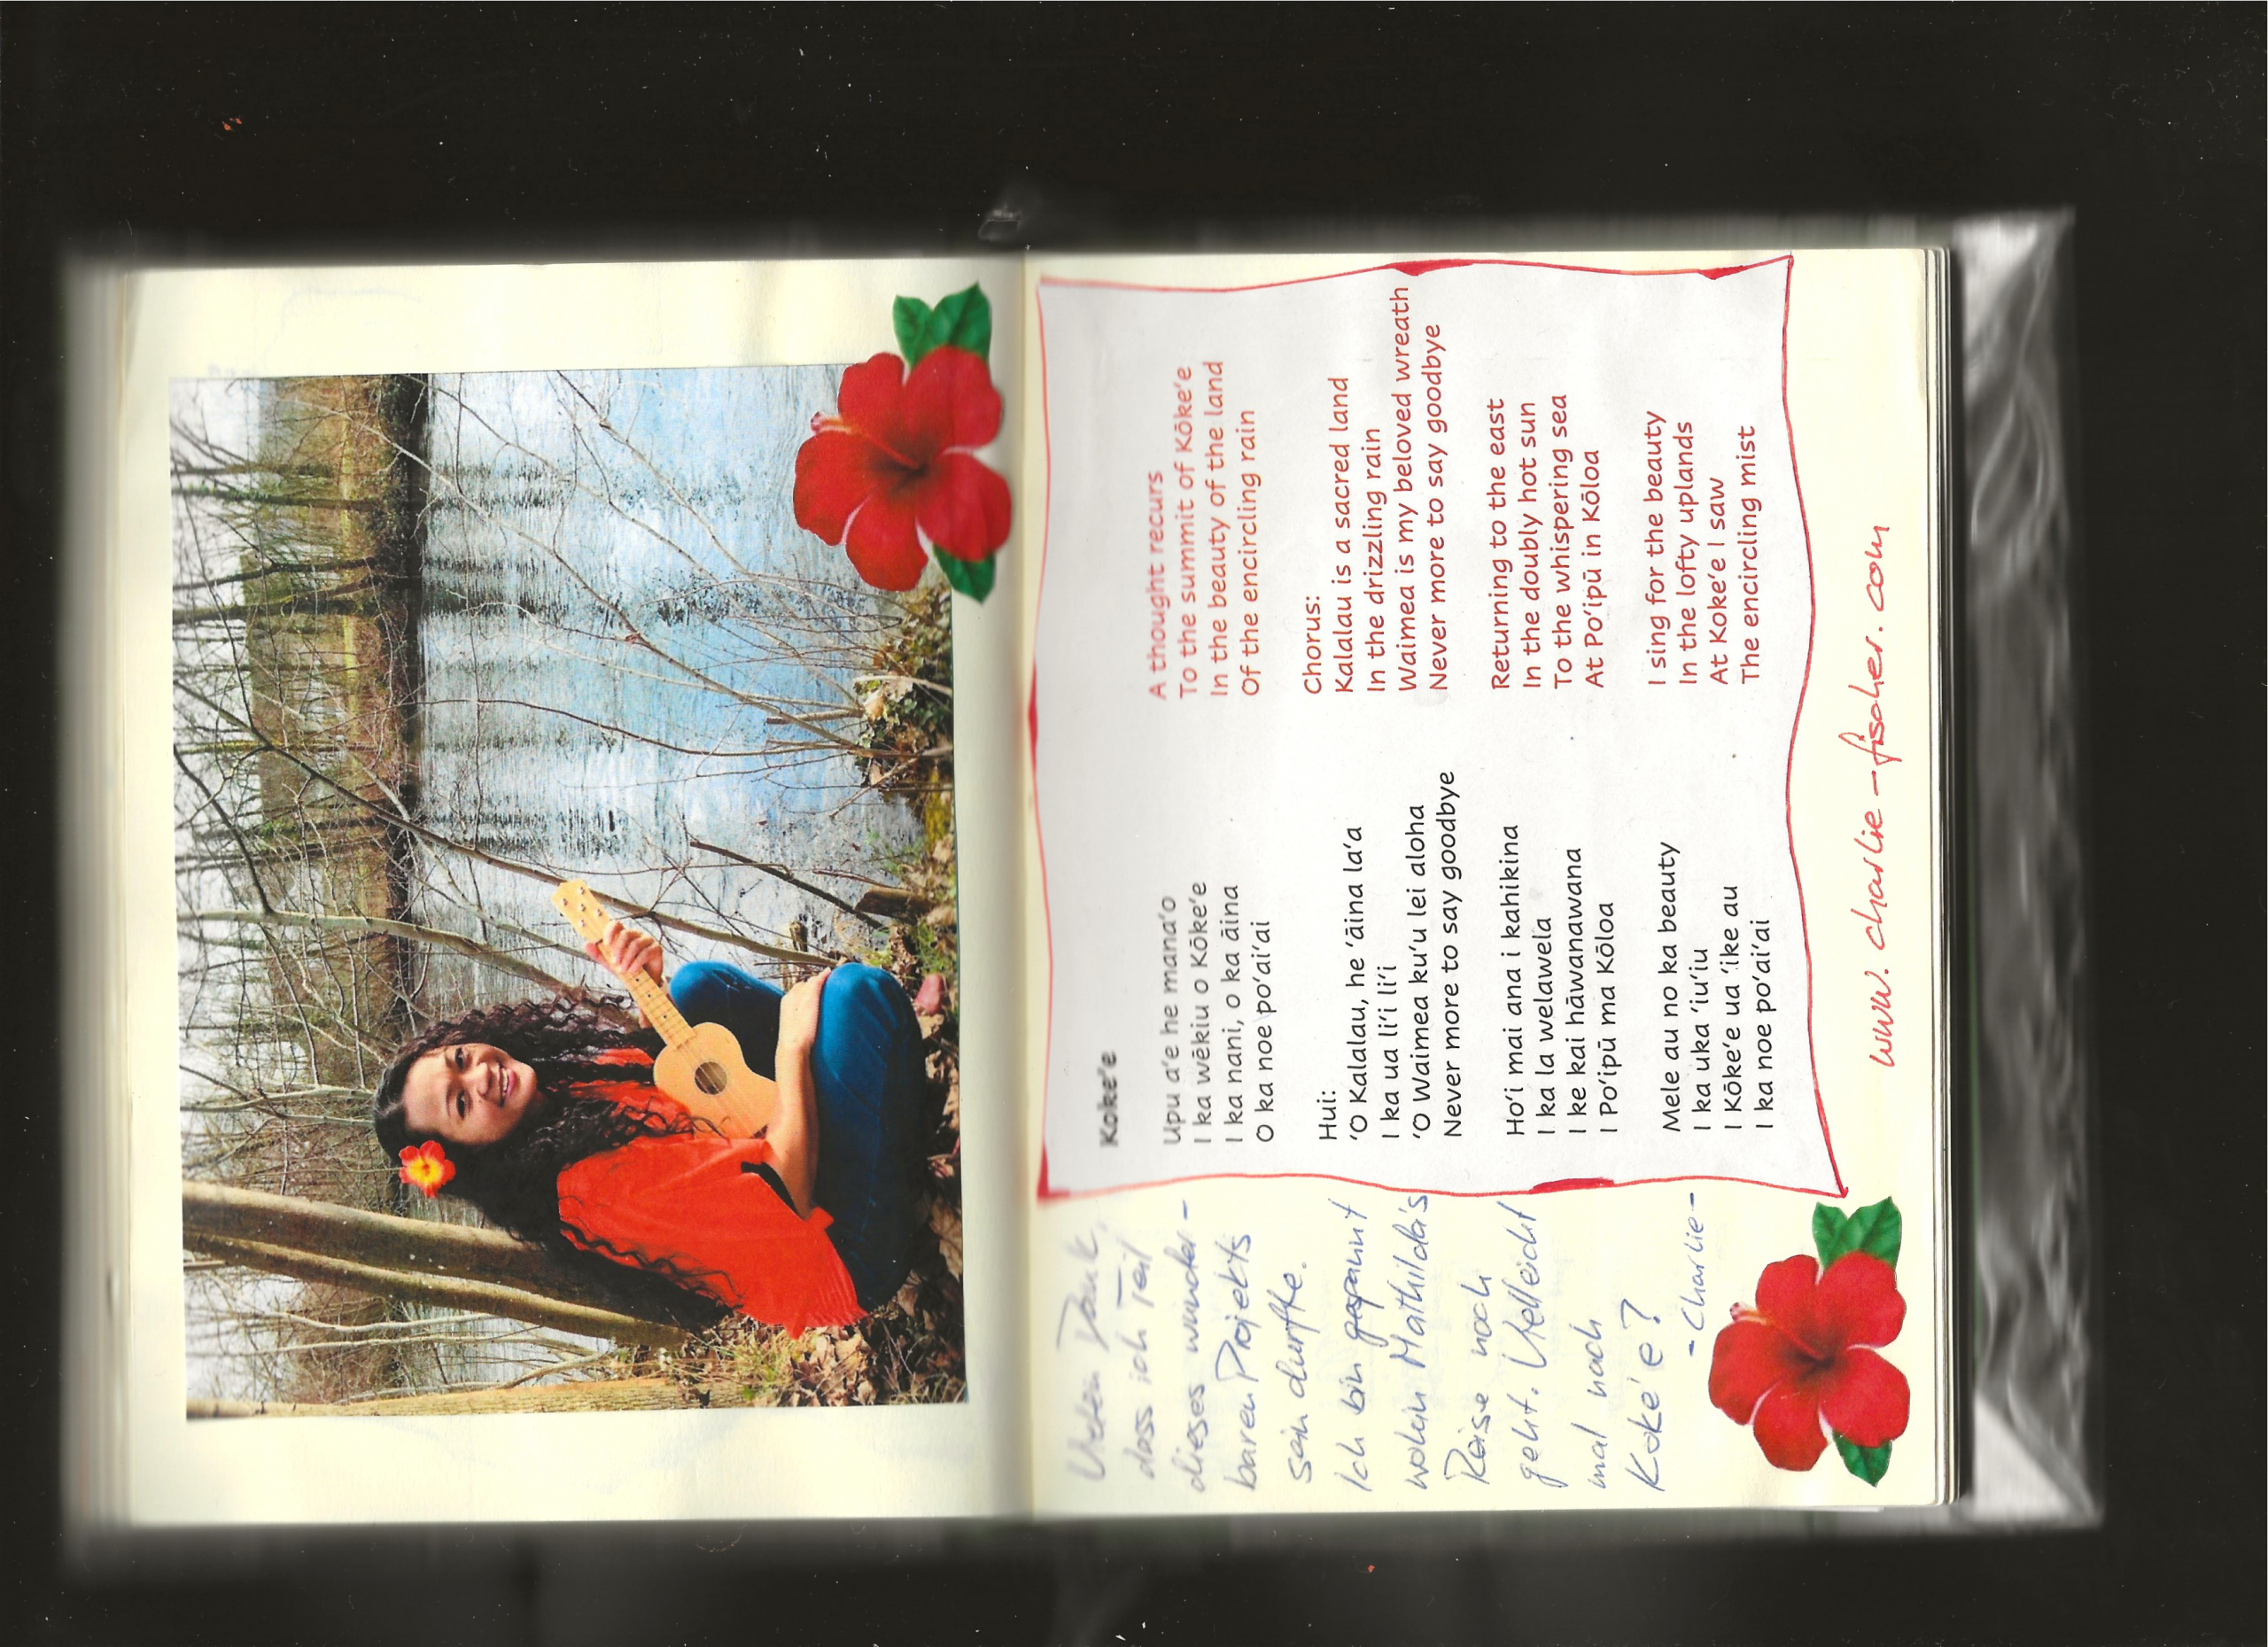 Koke'e
Upu a'e he mana'o
I ka wēkiu o Kōke'e
I ka nani, o ka āina
O ka noe po'ai'ai
Hui:
'O Kalalau, he 'āina la'a
I ka ua li'i li'i
'O Waimea ku'u lei aloha
Never more to say goodbye
Ho'i mai ana i kahikina
I ka la welawela
I ke kai hāwanawana
I Po'ipū ma Kōloa
Mele au no ka beauty
I ka uka 'iu'iu
I Kōke'e ua 'ike au
I ka noe po'ai'ai
A thought recurs
To the summit of Kōke'e
In the beauty of the land
Of the encircling rain
Chorus:
Kalalau is a sacred land
In the drizzling rain
Waimea is my beloved wreath
Never more to say goodbye
Returning to the east
In the doubly hot sun
To the whispering sea
At Po'ipū in Kōloa
I sing for the beauty
In the lofty uplands
At Koke'e I saw
The encircling mist
Vielen Dank,
dass ich Teil
dieses wunder-
baren Projekts
sein durfte.
Ich bin gespannt
wohin Mathilda's
Reise noch
geht. Vielleicht
mal nach
Koke'e?
- Charlie -
www.charlie-fischer.com